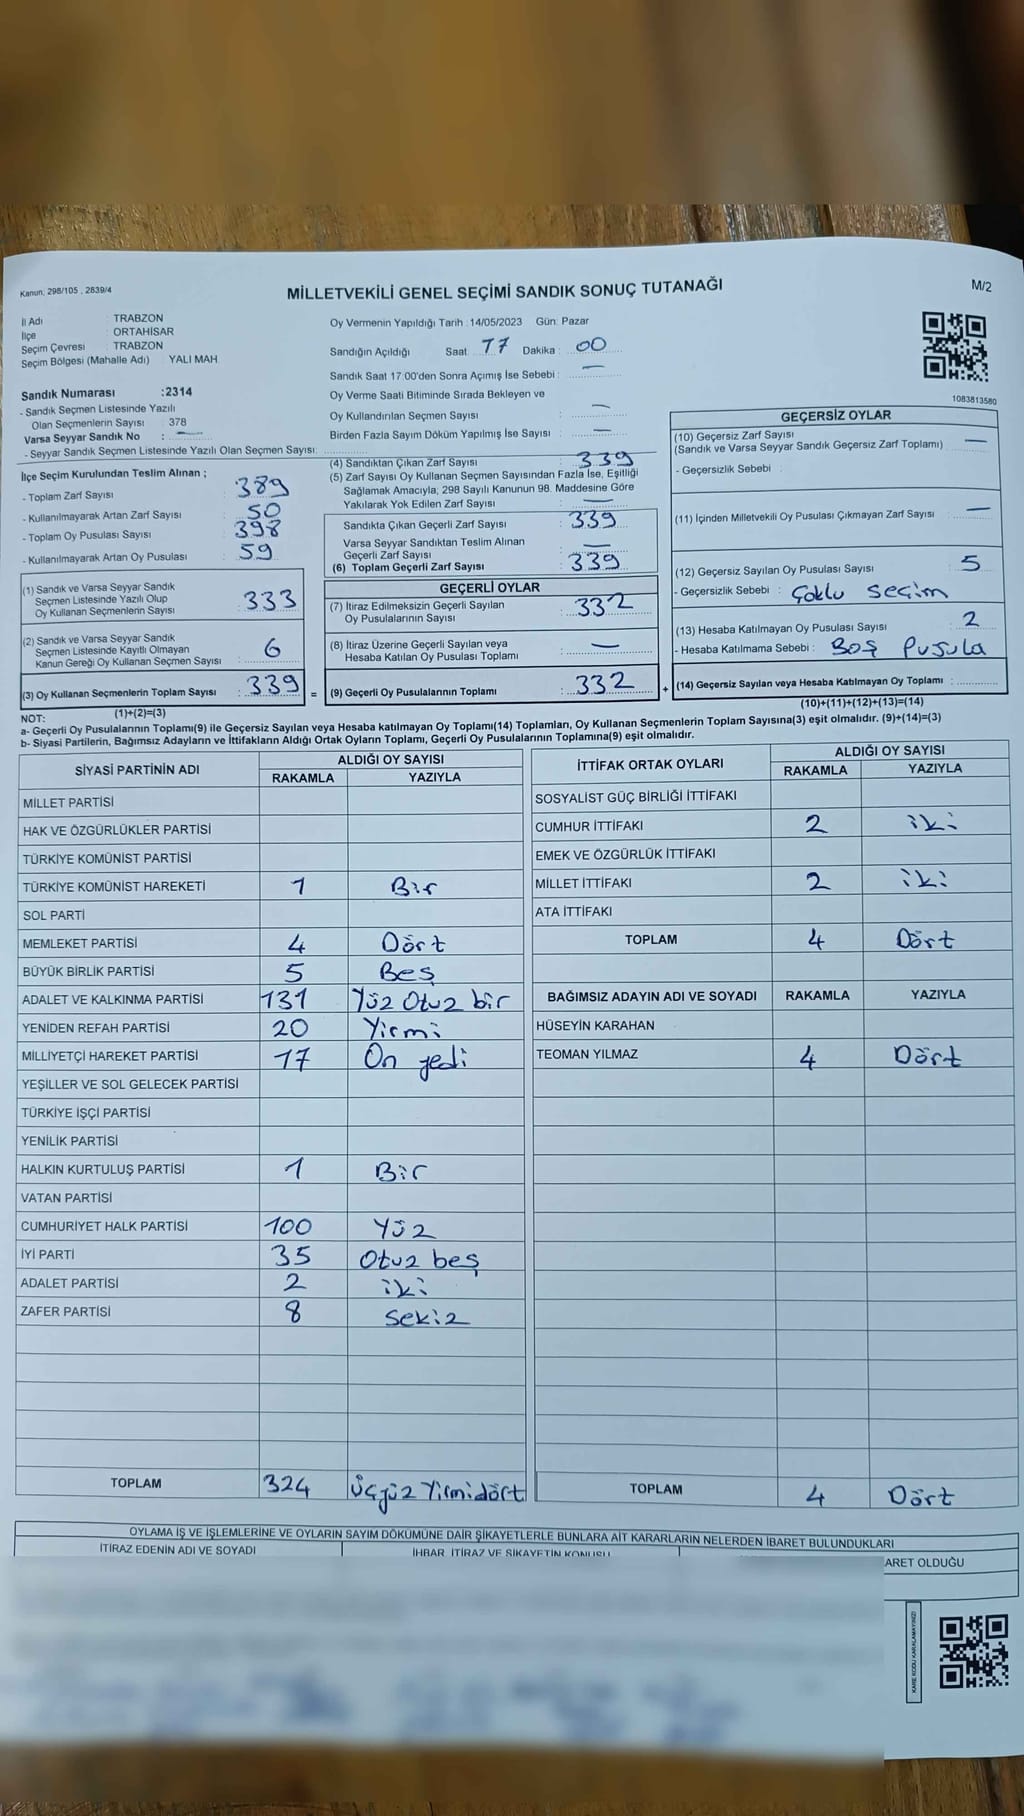 Kanun, 298/105 , 2839/4
MİLLETVEKİLİ GENEL SEÇİMİ SANDIK SONUÇ TUTANAĞI
M/2
İl Adı TRABZON
İlçe ORTAHİSAR
Seçim Çevresi TRABZON
Seçim Bölgesi (Mahalle Adı) YALI MAH.
Oy Vermenin Yapıldığı Tarih :14/05/2023 Gün: Pazar
Sandığın Açıldığı Saat 17 Dakika : 00
Sandık Saat 17:00'den Sonra Açımış İse Sebebi : —
Oy Verme Saati Bitiminde Sırada Bekleyen ve
Oy Kullandırılan Seçmen Sayısı : —
Birden Fazla Sayım Döküm Yapılmış İse Sayısı : —
1083813580
Sandık Numarası :2314
- Sandık Seçmen Listesinde Yazılı
Olan Seçmenlerin Sayısı : 378
Varsa Seyyar Sandık No : —
- Seyyar Sandık Seçmen Listesinde Yazılı Olan Seçmen Sayısı:
İlçe Seçim Kurulundan Teslim Alınan ;
- Toplam Zarf Sayısı : 389
- Kullanılmayarak Artan Zarf Sayısı : 50
- Toplam Oy Pusulası Sayısı : 398
- Kullanılmayarak Artan Oy Pusulası : 59
(1) Sandık ve Varsa Seyyar Sandık
Seçmen Listesinde Yazılı Olup
Oy Kullanan Seçmenlerin Sayısı : 333
(2) Sandık ve Varsa Seyyar Sandık
Seçmen Listesinde Kayıtlı Olmayan
Kanun Gereği Oy Kullanan Seçmen Sayısı : 6
(3) Oy Kullanan Seçmenlerin Toplam Sayısı : 339 =
(1)+(2)=(3)
(4) Sandıktan Çıkan Zarf Sayısı : 339
(5) Zarf Sayısı Oy Kullanan Seçmen Sayısından Fazla İse, Eşitliği
Sağlamak Amacıyla, 298 Sayılı Kanunun 98. Maddesine Göre
Yakılarak Yok Edilen Zarf Sayısı : —
Sandıkta Çıkan Geçerli Zarf Sayısı : 339
Varsa Seyyar Sandıktan Teslim Alınan
Geçerli Zarf Sayısı : —
(6) Toplam Geçerli Zarf Sayısı : 339
GEÇERLİ OYLAR
(7) İtiraz Edilmeksizin Geçerli Sayılan
Oy Pusulalarının Sayısı : 332
(8) İtiraz Üzerine Geçerli Sayılan veya
Hesaba Katılan Oy Pusulası Toplamı : —
(9) Geçerli Oy Pusulalarının Toplamı : 332 +
GEÇERSİZ OYLAR
(10) Geçersiz Zarf Sayısı
(Sandık ve Varsa Seyyar Sandık Geçersiz Zarf Toplamı) : —
- Geçersizlik Sebebi :
(11) İçinden Milletvekili Oy Pusulası Çıkmayan Zarf Sayısı : —
(12) Geçersiz Sayılan Oy Pusulası Sayısı : 5
- Geçersizlik Sebebi : Çoklu seçim
(13) Hesaba Katılmayan Oy Pusulası Sayısı : 2
- Hesaba Katılmama Sebebi : Boş Pusula
(14) Geçersiz Sayılan veya Hesaba Katılmayan Oy Toplamı :
(10)+(11)+(12)+(13)=(14)
NOT:
a- Geçerli Oy Pusulalarının Toplamı(9) ile Geçersiz Sayılan veya Hesaba katılmayan Oy Toplamı(14) Toplamları, Oy Kullanan Seçmenlerin Toplam Sayısına(3) eşit olmalıdır. (9)+(14)=(3)
b- Siyasi Partilerin, Bağımsız Adayların ve İttifakların Aldığı Ortak Oyların Toplamı, Geçerli Oy Pusulalarının Toplamına(9) eşit olmalıdır.
SİYASİ PARTİNİN ADI ALDIĞI OY SAYISI
RAKAMLA YAZIYLA
MİLLET PARTİSİ
HAK VE ÖZGÜRLÜKLER PARTİSİ
TÜRKİYE KOMÜNİST PARTİSİ
TÜRKİYE KOMÜNİST HAREKETİ 1 Bir
SOL PARTİ
MEMLEKET PARTİSİ 4 Dört
BÜYÜK BİRLİK PARTİSİ 5 Beş
ADALET VE KALKINMA PARTİSİ 131 Yüz Otuz bir
YENİDEN REFAH PARTİSİ 20 Yirmi
MİLLİYETÇİ HAREKET PARTİSİ 17 On yedi
YEŞİLLER VE SOL GELECEK PARTİSİ
TÜRKİYE İŞÇİ PARTİSİ
YENİLİK PARTİSİ
HALKIN KURTULUŞ PARTİSİ 1 Bir
VATAN PARTİSİ
CUMHURİYET HALK PARTİSİ 100 Yüz
İYİ PARTİ 35 Otuz beş
ADALET PARTİSİ 2 iki
ZAFER PARTİSİ 8 sekiz
TOPLAM 324 Üçyüz Yirmidört
İTTİFAK ORTAK OYLARI ALDIĞI OY SAYISI
RAKAMLA YAZIYLA
SOSYALİST GÜÇ BİRLİĞİ İTTİFAKI
CUMHUR İTTİFAKI 2 iki
EMEK VE ÖZGÜRLÜK İTTİFAKI
MİLLET İTTİFAKI 2 iki
ATA İTTİFAKI
TOPLAM 4 Dört
BAĞIMSIZ ADAYIN ADI VE SOYADI RAKAMLA YAZIYLA
HÜSEYİN KARAHAN
TEOMAN YILMAZ 4 Dört
TOPLAM 4 Dört
OYLAMA İŞ VE İŞLEMLERİNE VE OYLARIN SAYIM DÖKÜMÜNE DAİR ŞİKAYETLERLE BUNLARA AİT KARARLARIN NELERDEN İBARET BULUNDUKLARI
İTİRAZ EDENİN ADI VE SOYADI İHBAR, İTİRAZ VE ŞİKAYETİN KONUSU ARET OLDUĞU
KARE KODU KARALAMAYINIZ!